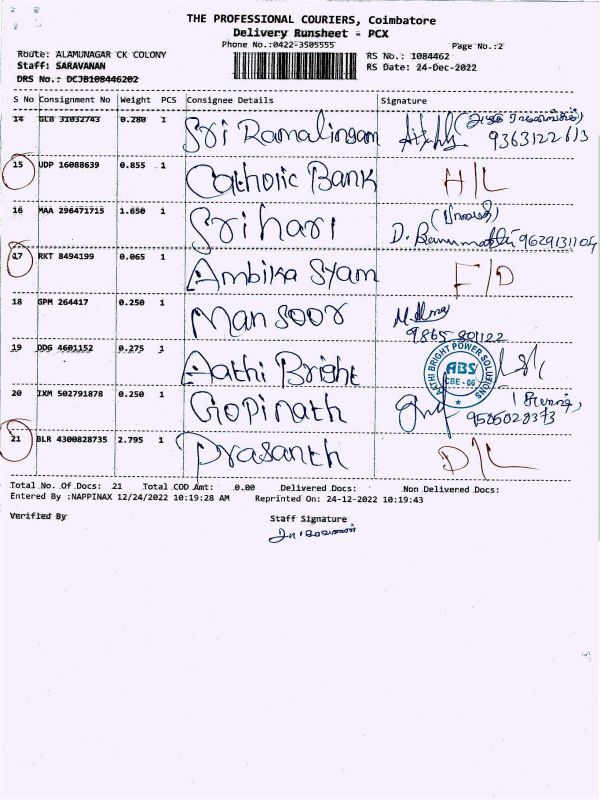 THE PROFESSIONAL COURIERS, Coimbatore
Delivery Runsheet - PCX
Phone No.:0422-3505555
Page No.:2
Route: ALAMUNAGAR CK COLONY
RS No.: 1084462
Staff: SARAVANAN
RS Date: 24-Dec-2022
DRS No.: DCJB108446202
S No Consignment No Weight PCS Consignee Details Signature
14 GLB 31032743 0.280 1 Sri Ramalingam 9363122613
15 UDP 16088639 0.855 1 Catholic Bank H/L
16 MAA 296471715 1.650 1 Srihari D. Banumathi 9629131104
17 RKT 8494199 0.065 1 Ambika Syam F/D
18 GPM 264417 0.250 1 Mansoor 9865 801122
19 DDG 4601152 0.275 1 Aathi Bright
AATHI BRIGHT POWER SOLUTIONS
ABS
CBE - 06
20 IXM 502791878 0.250 1 Gopinath 9585028373
21 BLR 4300828735 2.795 1 Prasanth D/L
Total No. Of Docs: 21 Total COD Amt: 0.00 Delivered Docs: Non Delivered Docs:
Entered By :NAPPINAX 12/24/2022 10:19:28 AM Reprinted On: 24-12-2022 10:19:43
Verified By Staff Signature